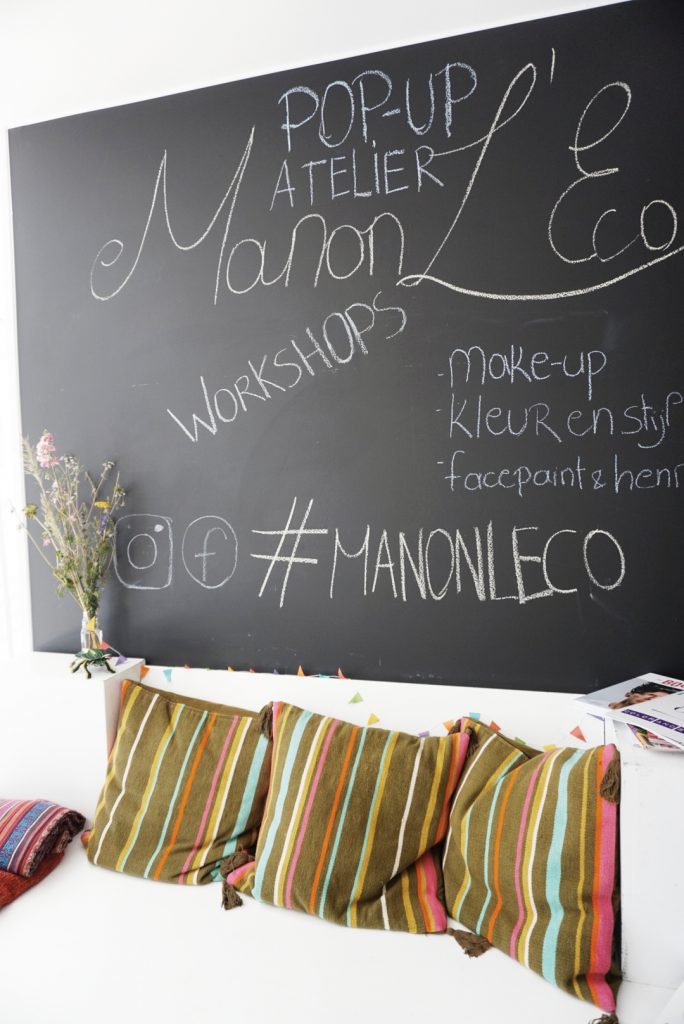 POP-UP
ATELIER
Manon L'Eco
WORKSHOPS
- make-up
- Kleur en stijl
- facepaint &
f #MANONLECO